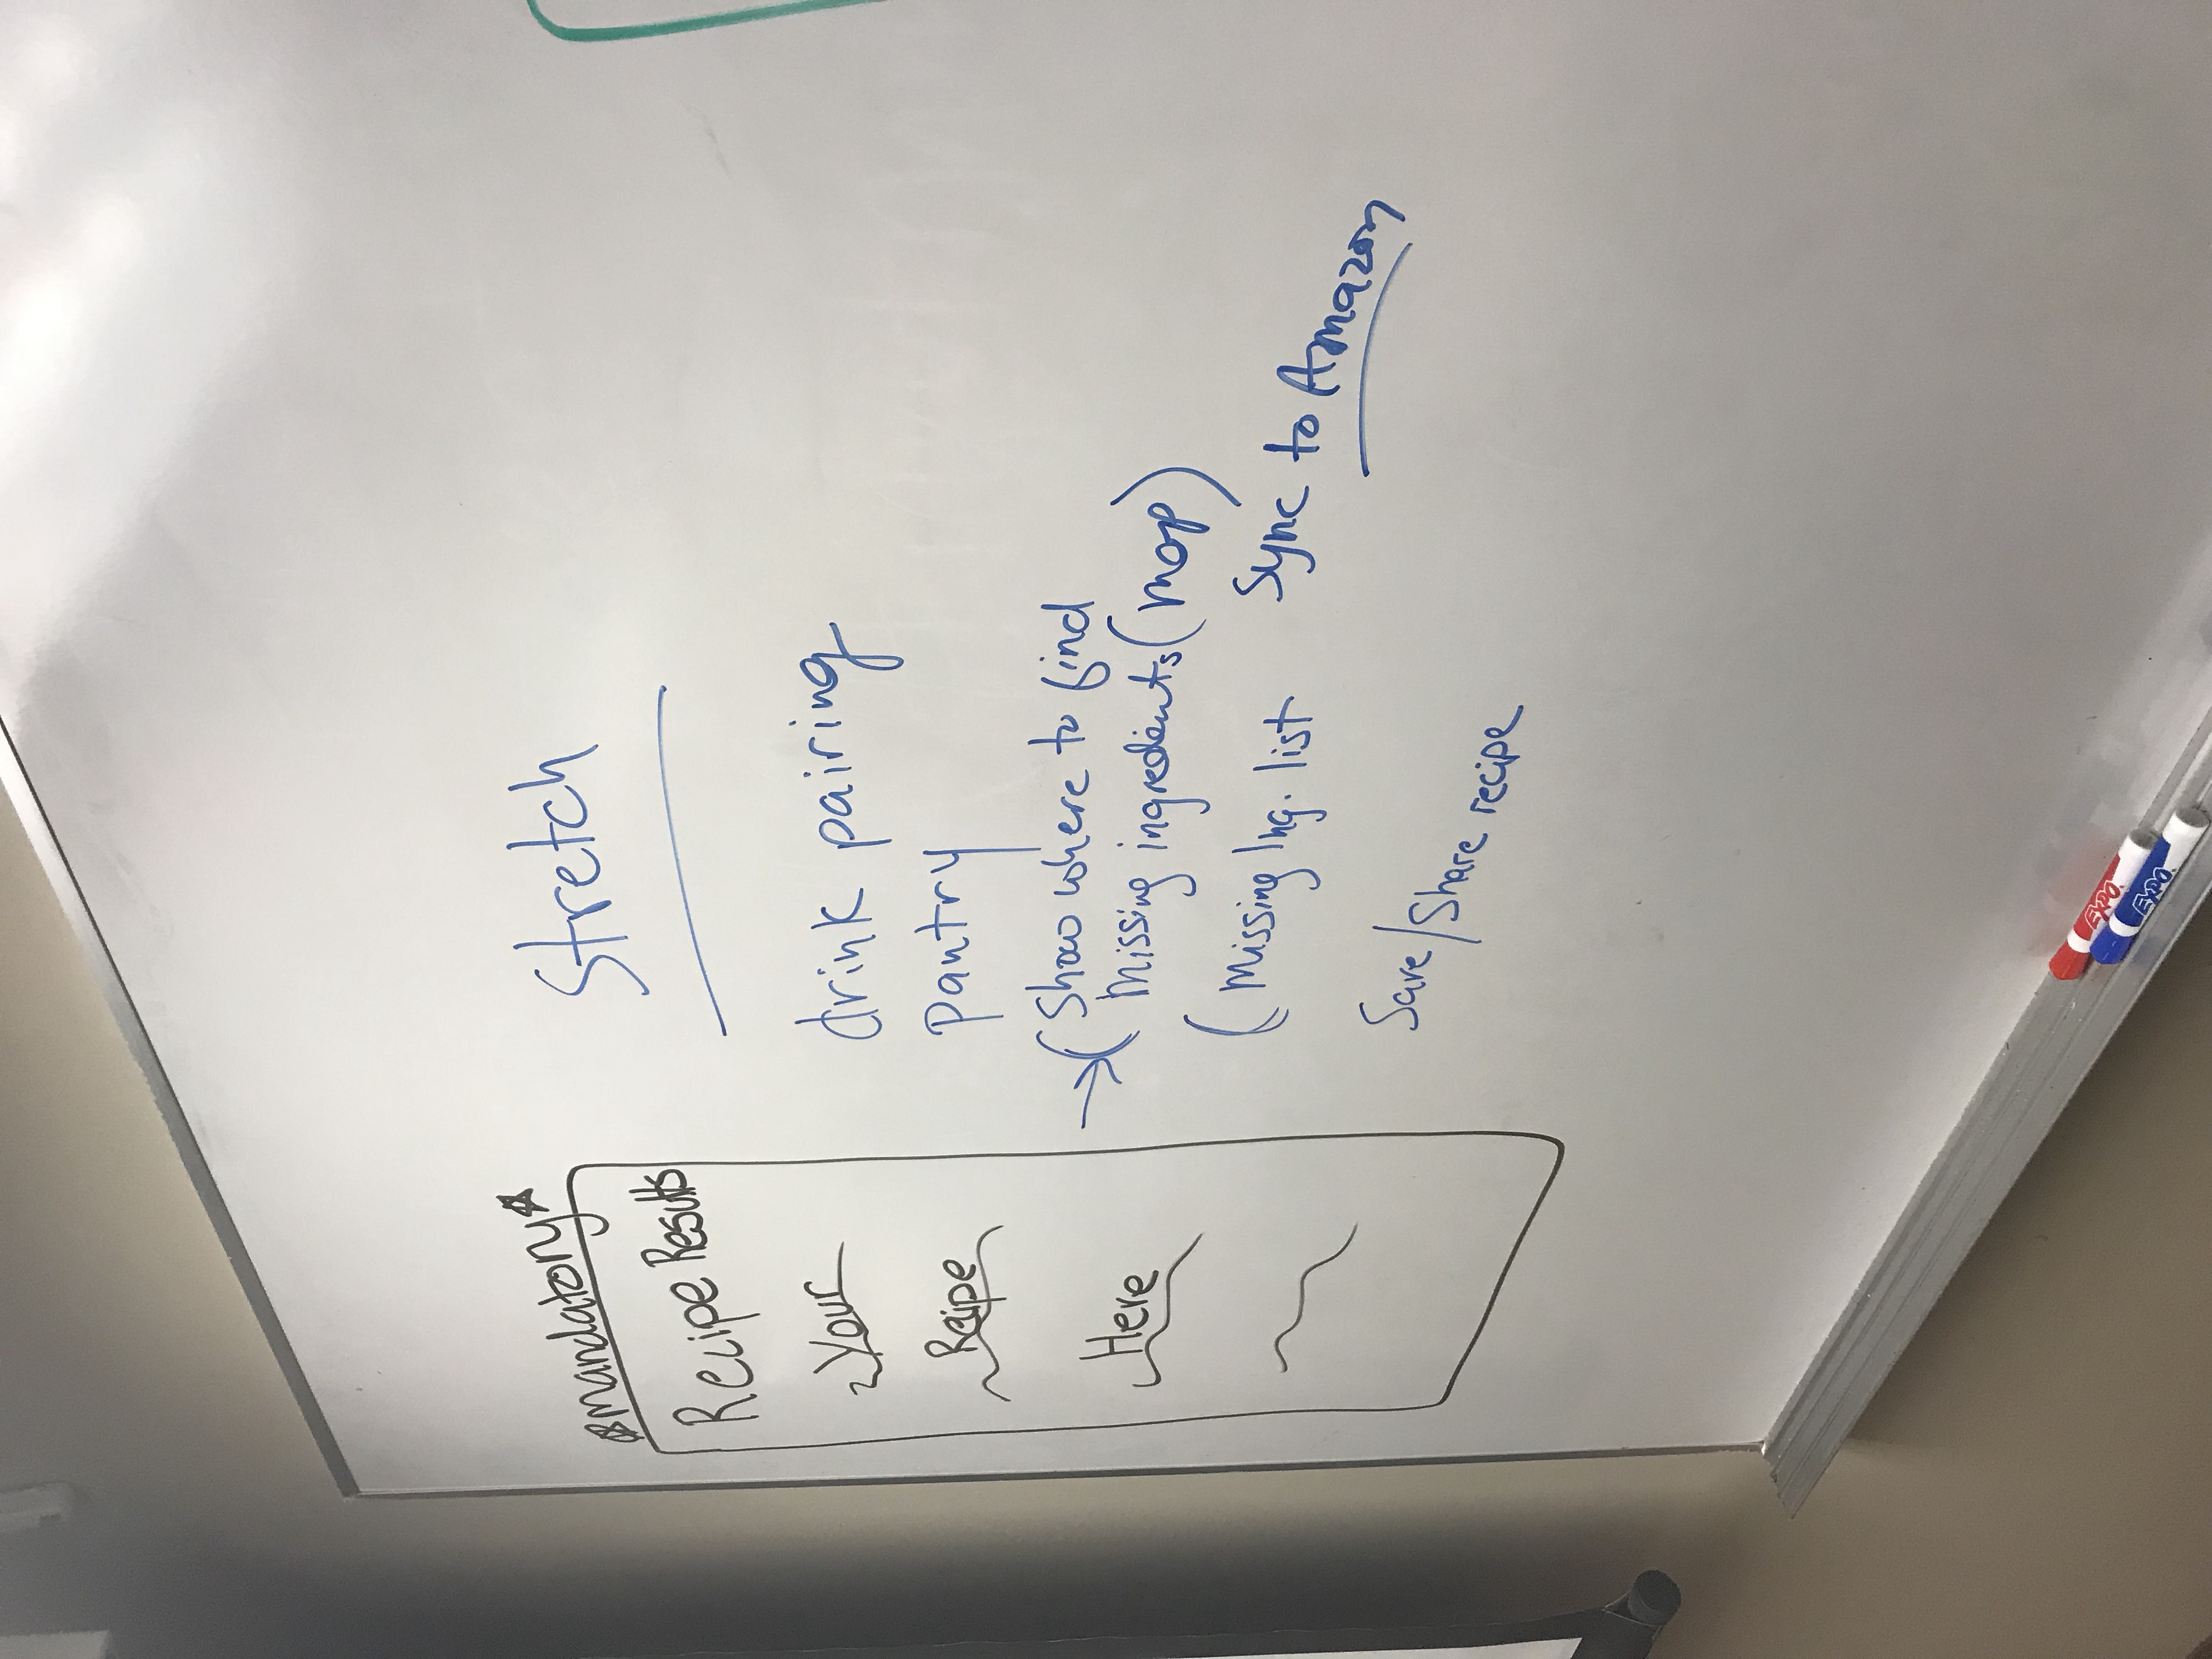 mandatory
Recipe Results
Your
Recipe
Here
Stretch
drink pairing
pantry
Show where to find
Missing ingredients (map)
(Missing Ing. list
Sync to Amazon
Save/Share recipe
EXPO
EXPO